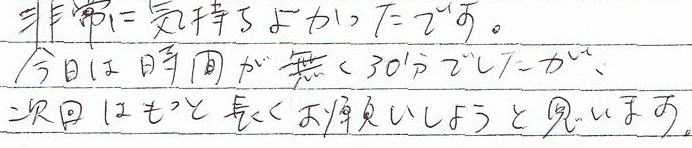 非常に気持ちよかったです。
今日は時間が無く30分でしたが、
次回はもっと長くお願いしようと思います。